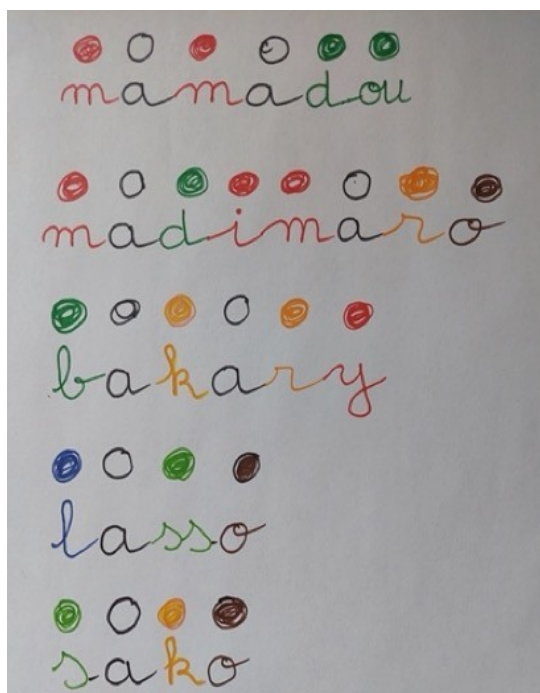 mamadou
madimaro
bakary
lasso
sako